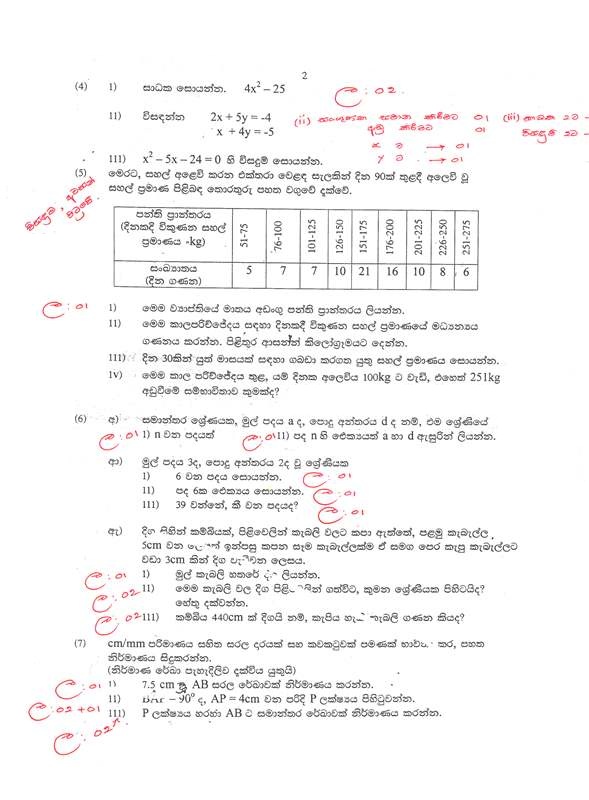 2
(4) 1) සාධක සොයන්න. 4x² – 25 ල : 02
11) විසඳන්න 2x + 5y = -4
x + 4y = -5
(ii) සංගුණක සමාන කිරීමට 01 (iii) සාධක 2ට -
අඩු කිරීමට 01 විසඳුම් 2ට -
x ට → 01
y ට → 01
111) x² – 5x – 24 = 0 හි විසඳුම් සොයන්න.
(5) මෙරට, සහල් අළෙවි කරන එක්තරා වෙළඳ සැලකින් දින 90ක් තුළදී අලෙවි වූ
සහල් ප්‍රමාණ පිළිබඳ තොරතුරු පහත වගුවේ දැක්වේ.
පන්ති ප්‍රාන්තරය (දිනකදී විකුණන සහල් ප්‍රමාණය -kg) 51-75 76-100 101-125 126-150 151-175 176-200 201-225 226-250 251-275
සංඛ්‍යාතය (දින ගණන) 5 7 7 10 21 16 10 8 6
ල : 01 1) මෙම ව්‍යාප්තියේ මාතය අඩංගු පන්ති ප්‍රාන්තරය ලියන්න.
11) මෙම කාලපරිච්ඡේදය සඳහා දිනකදී විකුණන සහල් ප්‍රමාණයේ මධ්‍යන්‍යය
ගණනය කරන්න. පිළිතුර ආසන්න කිලෝග්‍රෑමයට දෙන්න.
111) දින 30කින් යුත් මාසයක් සඳහා ගබඩා කරගත යුතු සහල් ප්‍රමාණය සොයන්න.
1v) මෙම කාල පරිච්ඡේදය තුළ, යම් දිනක අලෙවිය 100kg ට වැඩි, එහෙත් 251kg
අඩුවීමේ සම්භාවිතාව කුමක්ද?
(6) අ) සමාන්තර ශ්‍රේණියක, මුල් පදය a ද, පොදු අන්තරය d ද නම්, එම ශ්‍රේණියේ
ල : 01 1) n වන පදයත් ල : 01 11) පද n හි ඓක්‍යයත් a හා d ඇසුරින් ලියන්න.
ආ) මුල් පදය 3ද, පොදු අන්තරය 2ද වූ ශ්‍රේණියක
1) 6 වන පදය සොයන්න. ල : 01
11) පද 6ක ඓක්‍යය සොයන්න. ල : 01
111) 39 වන්නේ, කී වන පදයද? ල : 01
ඇ) දිග සිහින් කම්බියක්, පිළිවෙලින් කැබලි වලට කපා ඇත්තේ, පළමු කැබැල්ල
5cm වන ඉන්පසු කපන සෑම කැබැල්ලක්ම ඒ සමග පෙර කැපු කැබැල්ලට
වඩා 3cm කින් දිග වන ලෙසය.
ල : 01 1) මුල් කැබලි හතරේ ලියන්න.
ල : 02 11) මෙම කැබලි වල දිග ගත්විට, කුමන ශ්‍රේණියක පිහිටයිද?
හේතු දක්වන්න.
ල : 02 111) කම්බිය 440cm ක් දිගයි නම්, කැපිය කැබලි ගණන කියද?
(7) cm/mm පරිමාණය සහිත සරල දාරයක් සහ කවකටුවක් පමණක් කර, පහත
නිර්මාණය සිදුකරන්න.
(නිර්මාණ රේඛා පැහැදිලිව දක්විය යුතුයි)
ල : 01 1) 7.5 cm AB සරල රේඛාවක් නිර්මාණය කරන්න.
ල : 02 + 01 11) 90⁰ ද, AP = 4cm වන පරිදි P ලක්ෂ්‍යය පිහිටුවන්න.
ල : 02 111) P ලක්ෂ්‍යය හරහා AB ට සමාන්තර රේඛාවක් නිර්මාණය කරන්න.